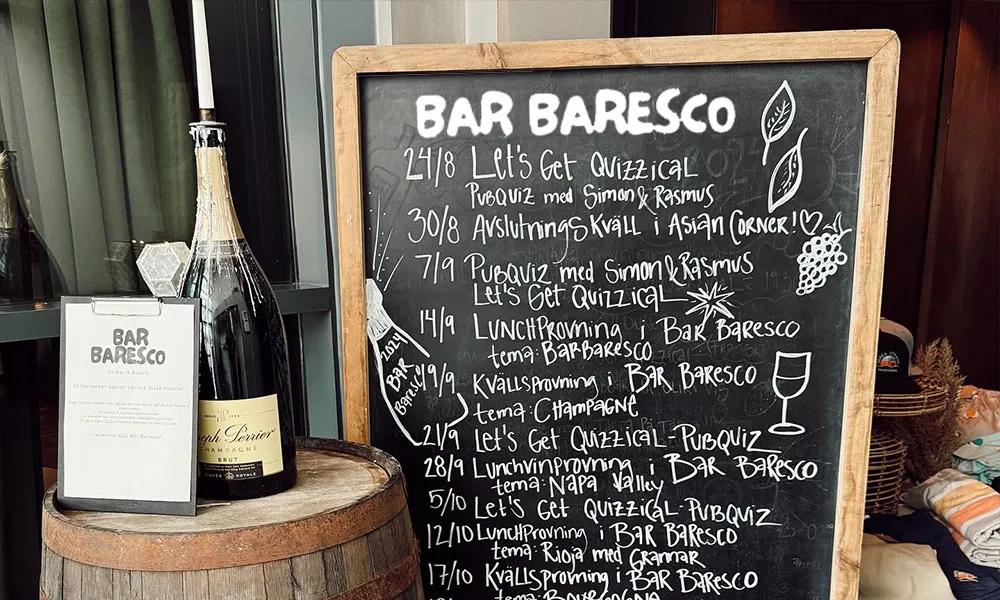 BAR BARESCO
24/8 Let's Get Quizzical
PubQuiz med Simon & Rasmus
30/8 Avslutningskväll i Asian Corner!
7/9 PubQuiz med Simon & Rasmus
Let's Get Quizzical
14/9 Lunchprovning i Bar Baresco
tema: BarBaresco
19/9 Kvällsprovning i Bar Baresco
tema: Champagne
21/9 Let's Get Quizzical - PubQuiz
28/9 Lunchvinprovning i Bar Baresco
tema: Napa Valley
5/10 Let's Get Quizzical - PubQuiz
12/10 Lunchprovning i Bar Baresco
tema: Rioja med Grannar
17/10 Kvällsprovning i Bar Baresco
tema: Bourgogne
2024
Bar
Baresco
BAR
BARESCO
Joseph Perrier
CHAMPAGNE
BRUT
CUVÉE ROYALE